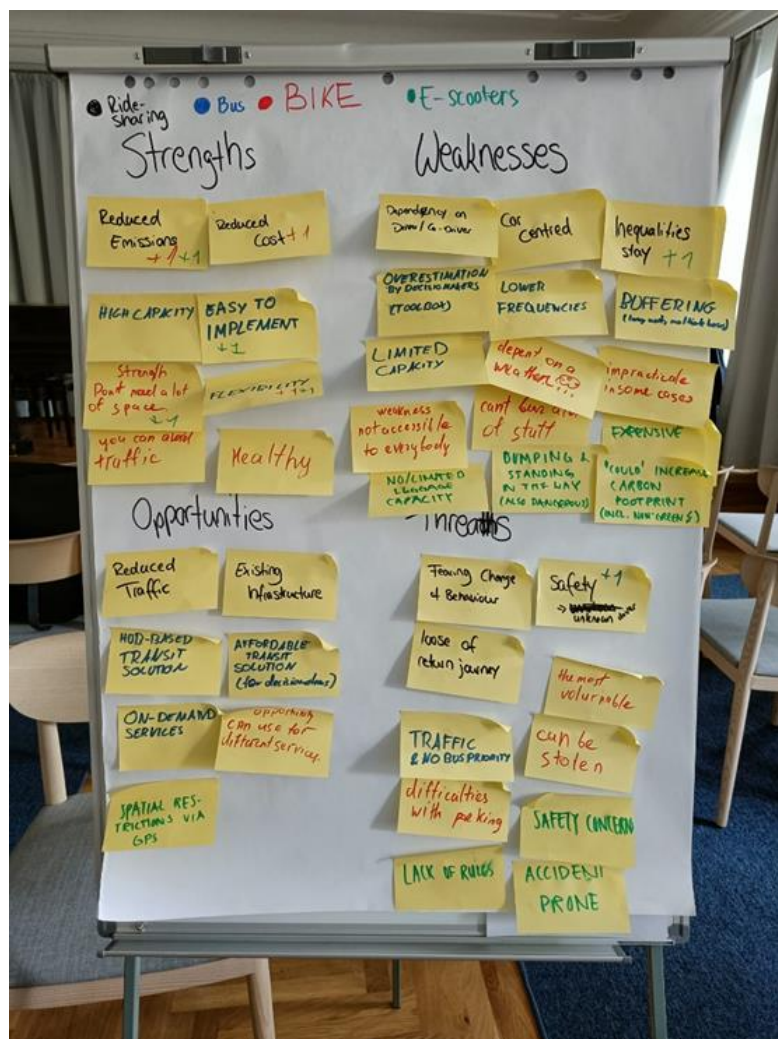 • Ride-sharing • Bus • BIKE • E-scooters
Strengths
Reduced
Emissions
+1 +1
Reduced
Cost +1
HIGH CAPACITY
EASY TO
IMPLEMENT
+1
Strength
Dont need a lot
of space
+1
FLEXIBILITY
+1+1
you can avoid
traffic
Healthy
Weaknesses
Dependency on
Driver/Co-Driver
Car
centred
Inequalities
stay +1
OVERESTIMATION
BY DECISIONMAKERS
(TOOLBOX)
LOWER
FREQUENCIES
BUFFERING
LIMITED
CAPACITY
depent on a
weather
impracticale
in some cases
weakness
not accessible
to everybody
cant
of stuff
EXPENSIVE
NO/LIMITED
LUGGAGE
CAPACITY
DUMPING &
STANDING
IN THE WAY
(ALSO DANGEROUS)
'COULD' INCREASE
CARBON
FOOTPRINT
(INCL. NON-GREEN $)
Opportunities
Reduced
Traffic
Existing
Infrastructure
HUB-BASED
TRANSIT
SOLUTION
AFFORDABLE
TRANSIT
SOLUTION
(for decisionmakers)
ON-DEMAND
SERVICES
opportunity
can use for
different services.
SPATIAL RES-
TRICTIONS VIA
GPS
Threaths
Fearing Change
of Behaviour
Safety +1
→ unknown driver
loose of
return journey
the most
volurnable
TRAFFIC
& NO BUS PRIORITY
can be
stolen
difficulties
with parking
SAFETY CONCERN
LACK OF RULES
ACCIDENT
PRONE